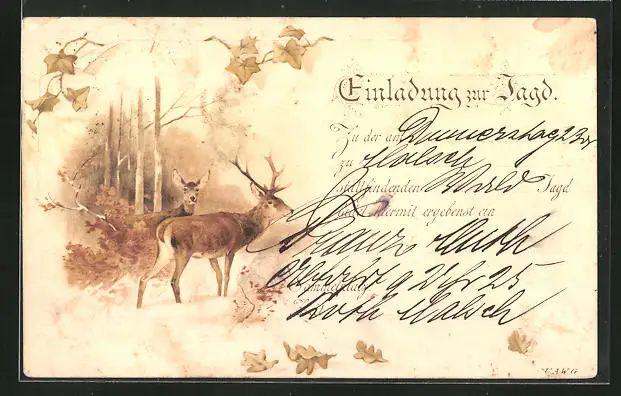 Einladung zur Jagd.
Zu der am Donnerstag 23
zu Malsch
stattfindenden Wald Jagd
ladet hiermit ergebenst ein
Franz
9 Uhr 25
Malsch
V.A.W.G.